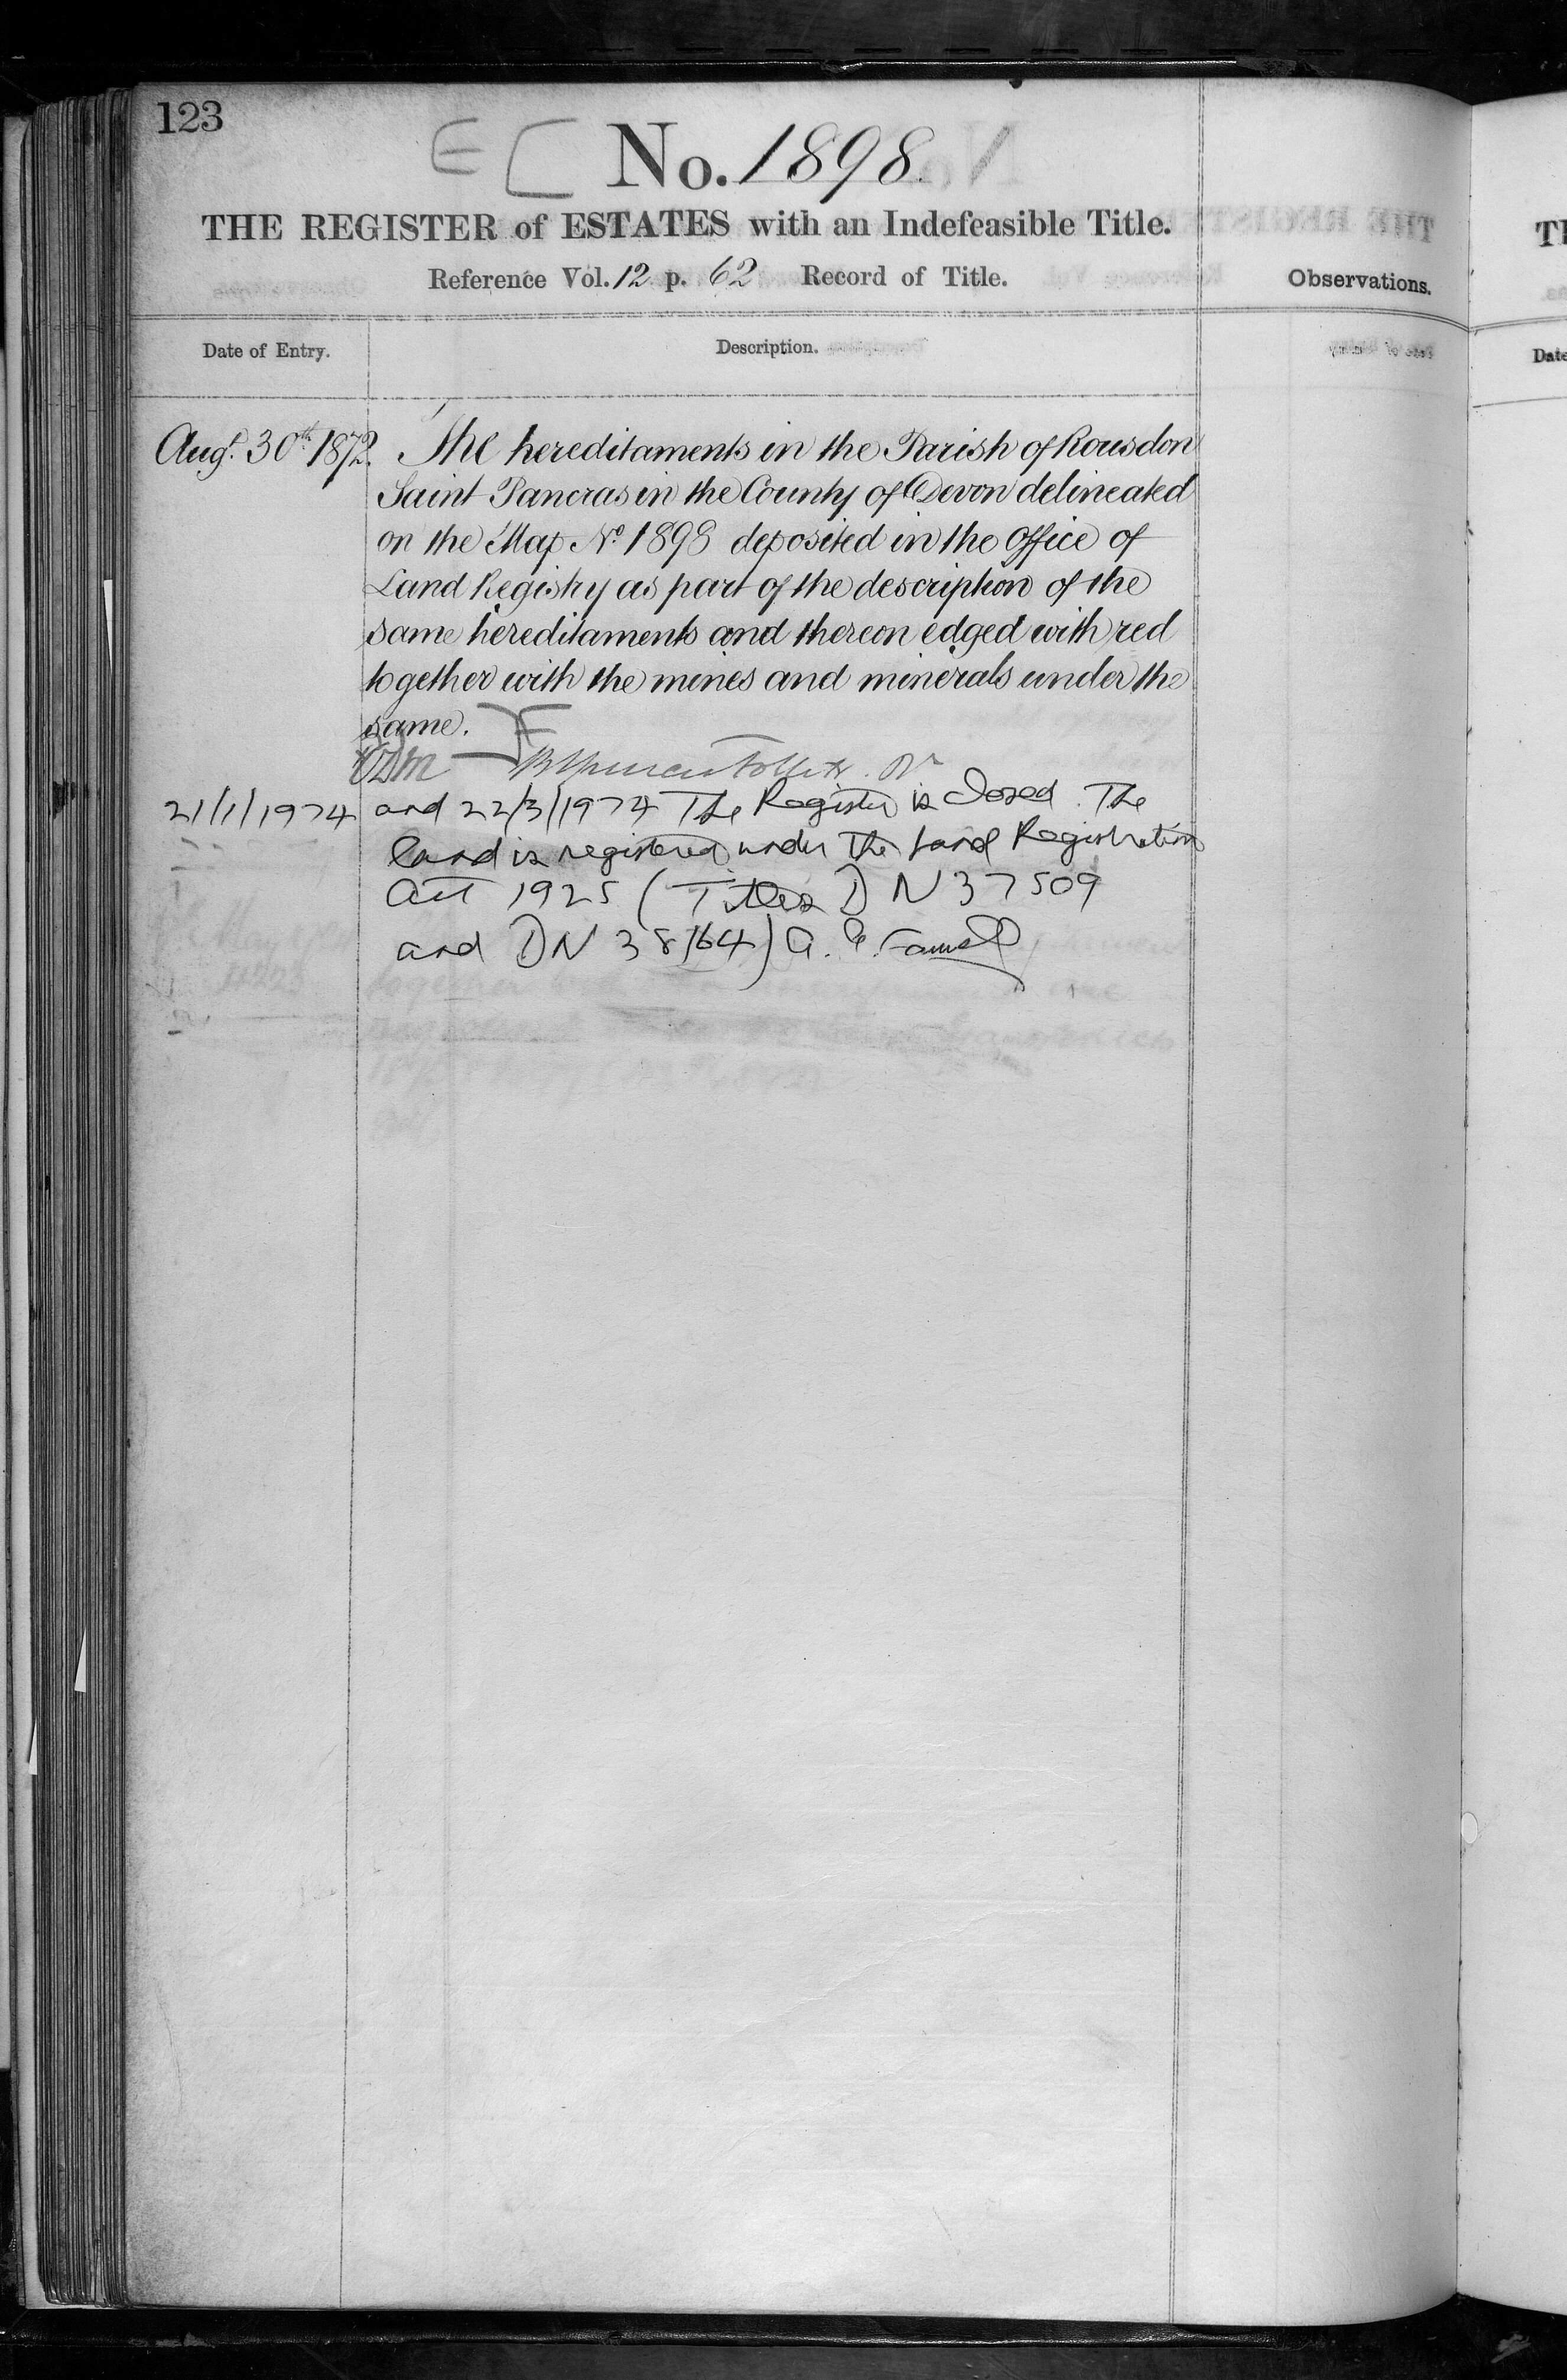 123
EC No. 1898.
THE REGISTER of ESTATES with an Indefeasible Title.
Reference Vol. 12 p. 62 Record of Title.
Observations.
Date of Entry.
Description.
Augt. 30th 1872. The hereditaments in the Parish of Rousdon
Saint Pancras in the County of Devon delineated
on the Map No. 1898 deposited in the Office of
Land Registry as part of the description of the
same hereditaments and thereon edged with red
together with the mines and minerals under the
same.
21/1/1974 and 22/3/1974 The Register is closed. The
land is registered under the Land Registration
Act 1925 (Titles DN 37509
and DN 38164)